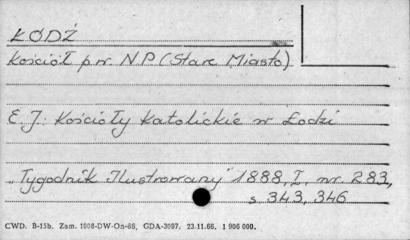 ŁÓDŹ
Kościół p.w. N.P (Stare Miasto)
E. J.: Kościoły katolickie w Łodzi
„Tygodnik Ilustrowany" 1888, I, nr. 283,
s 343, 346
CWD. B-15b. Zam. 1908-DW-On-66, GDA-3097. 23.11.66. 1 906 000.